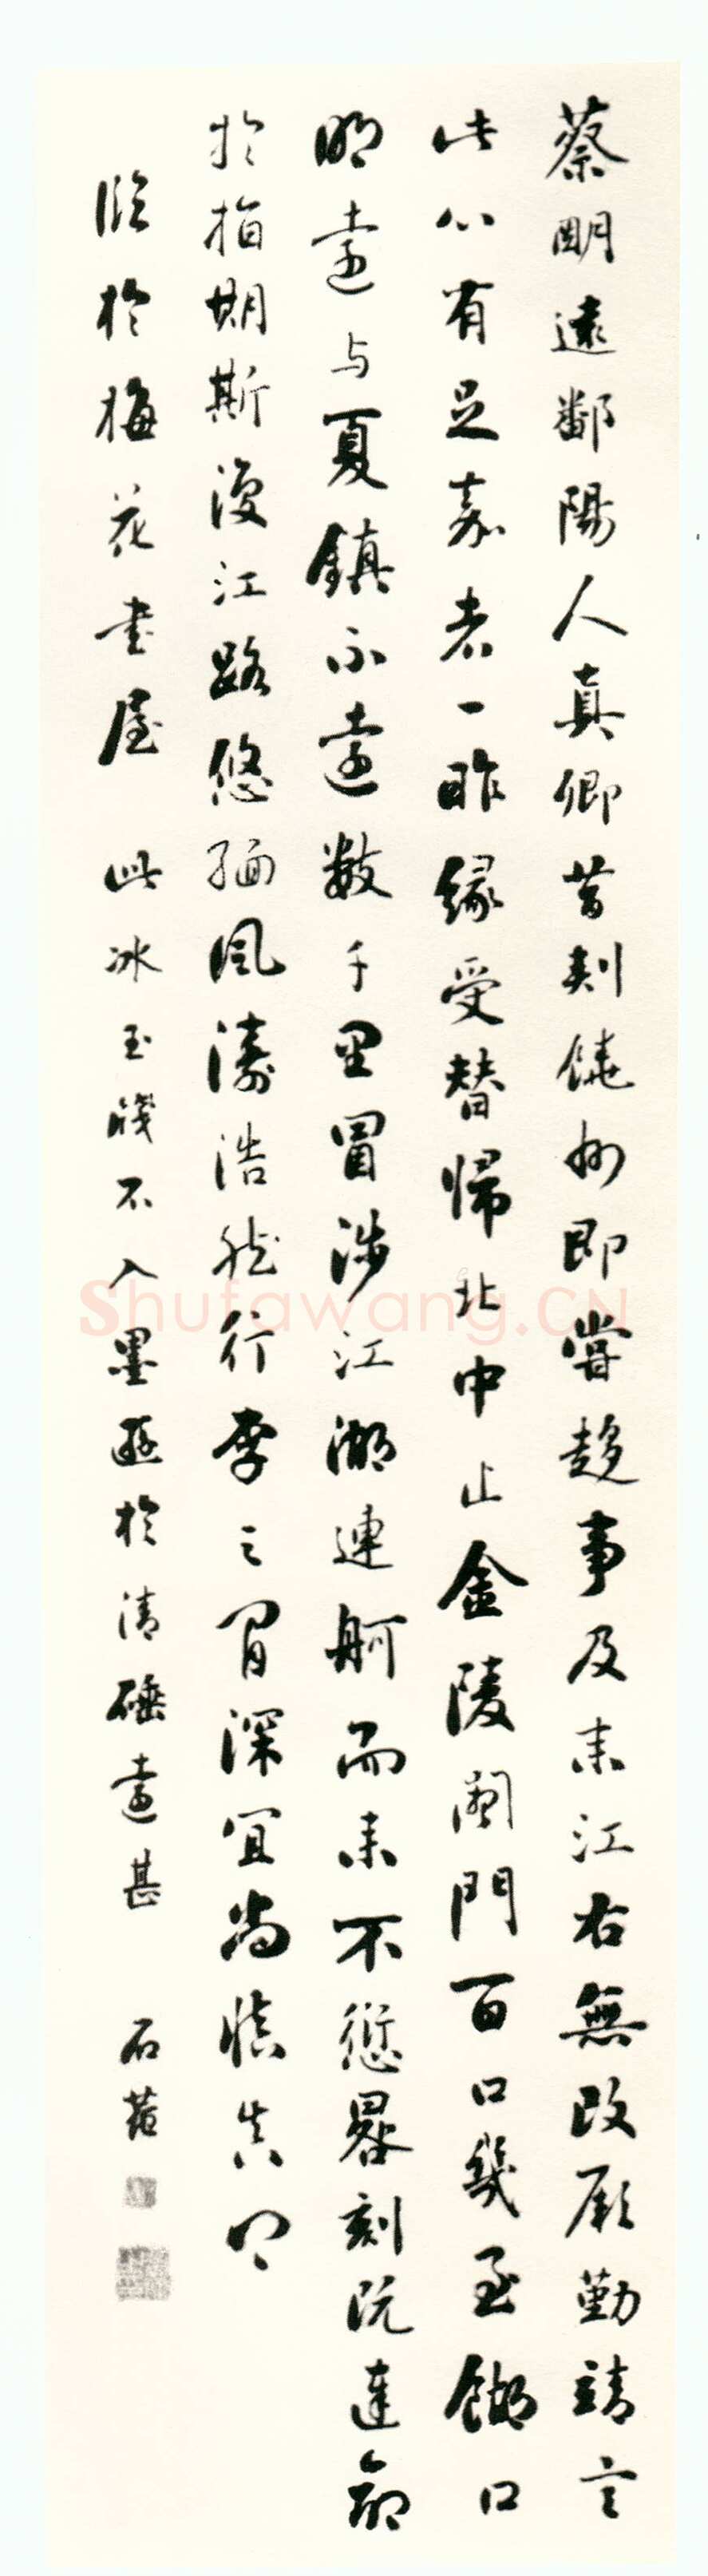 蔡明遠鄱陽人真卿昔刺饒州即嘗趍事及來江右無改厥勤靖言
此心有足嘉者一昨緣受替歸北中止金陵闔門百口幾至餬口
明遠与夏鎮不遠數千里冒涉江湖連舸而來不愆晷刻既達命
於指期斯復江路悠緬風濤浩然行李之間深宜尚慎真卿
臨於梅花書屋 此冰玉牋不入墨 於清硾遠甚 石菴
Shufawang.CN